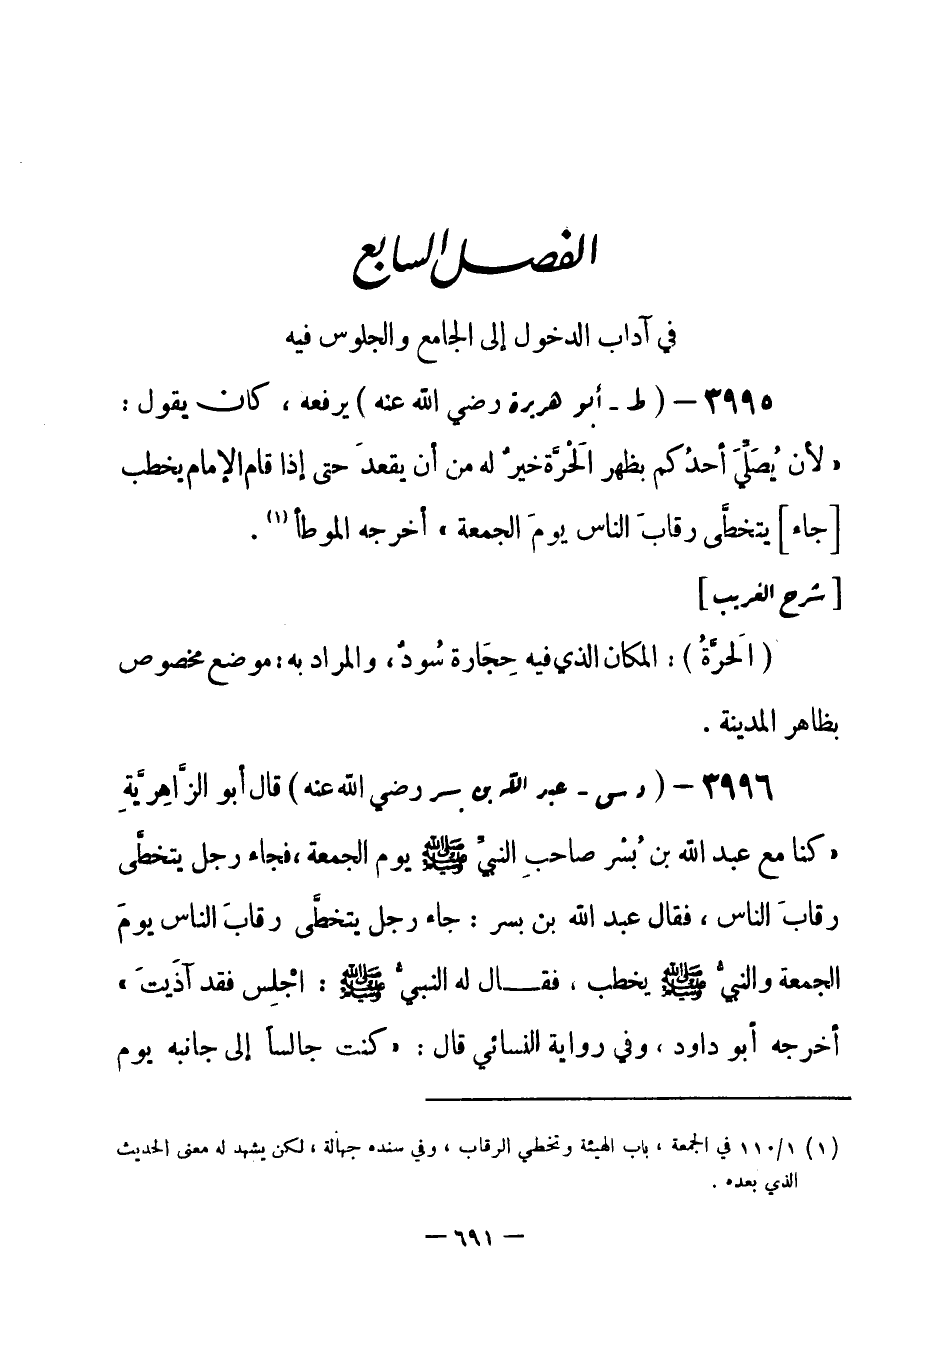 الفصل السابع
في آداب الدخول إلى الجامع والجلوس فيه
٣٩٩٥ — ( ط - أبو هريرة رضي الله عنه ) يرفعه ، كان يقول :
« لأن يُصَلِّيَ أحدُكم بظهر الحَرَّة خيرٌ له من أن يقعدَ حتى إذا قام الإمام يخطب
[ جاء ] يتخطَّى رقابَ الناس يومَ الجمعة » أخرجه الموطأ (١) .
[ شرح الغريب ]
( الحَرَّةُ ) : المكان الذي فيه حِجَارة سُودٌ ، والمراد به : موضع مخصوص
بظاهر المدينة .
٣٩٩٦ — ( د س - عبد الله بن بسر رضي الله عنه ) قال أبو الزَّاهِرِيَّةِ
« كنا مع عبد الله بن بُسْر صاحبِ النبيِّ ﷺ يوم الجمعة ، فجاء رجل يتخطَّى
رقابَ الناس ، فقال عبد الله بن بسر : جاء رجل يتخطَّى رقابَ الناس يومَ
الجمعة والنبيُّ ﷺ يخطب ، فقال له النبيُّ ﷺ : اجْلِس فقد آذَيتَ »
أخرجه أبو داود ، وفي رواية النسائي قال : « كنت جالساً إلى جانبه يوم
(١) ١١٠/١ في الجمعة ، باب الهيئة وتخطي الرقاب ، وفي سنده جهالة ، لكن يشهد له معنى الحديث
الذي بعده .
— ٦٩١ —